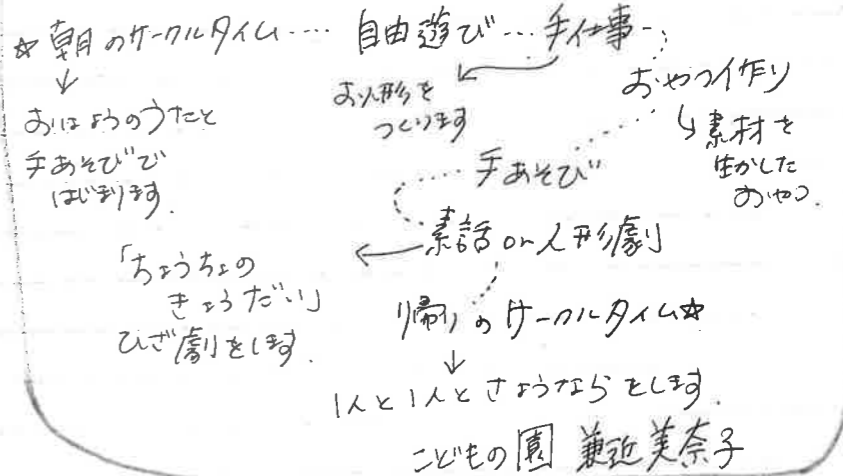 ☆朝のサークルタイム‥‥自由遊び‥‥手仕事
↓
おはようのうたと
手あそびで
はじまります.
お人形を
つくります
おやつ作り
↳素材を
生かした
おやつ.
手あそび
素話or人形劇
「ちょうちょの
きょうだい」
ひざ劇をします.
帰りのサークルタイム☆
↓
1人と1人とさようならをします.
こどもの園 兼近美奈子